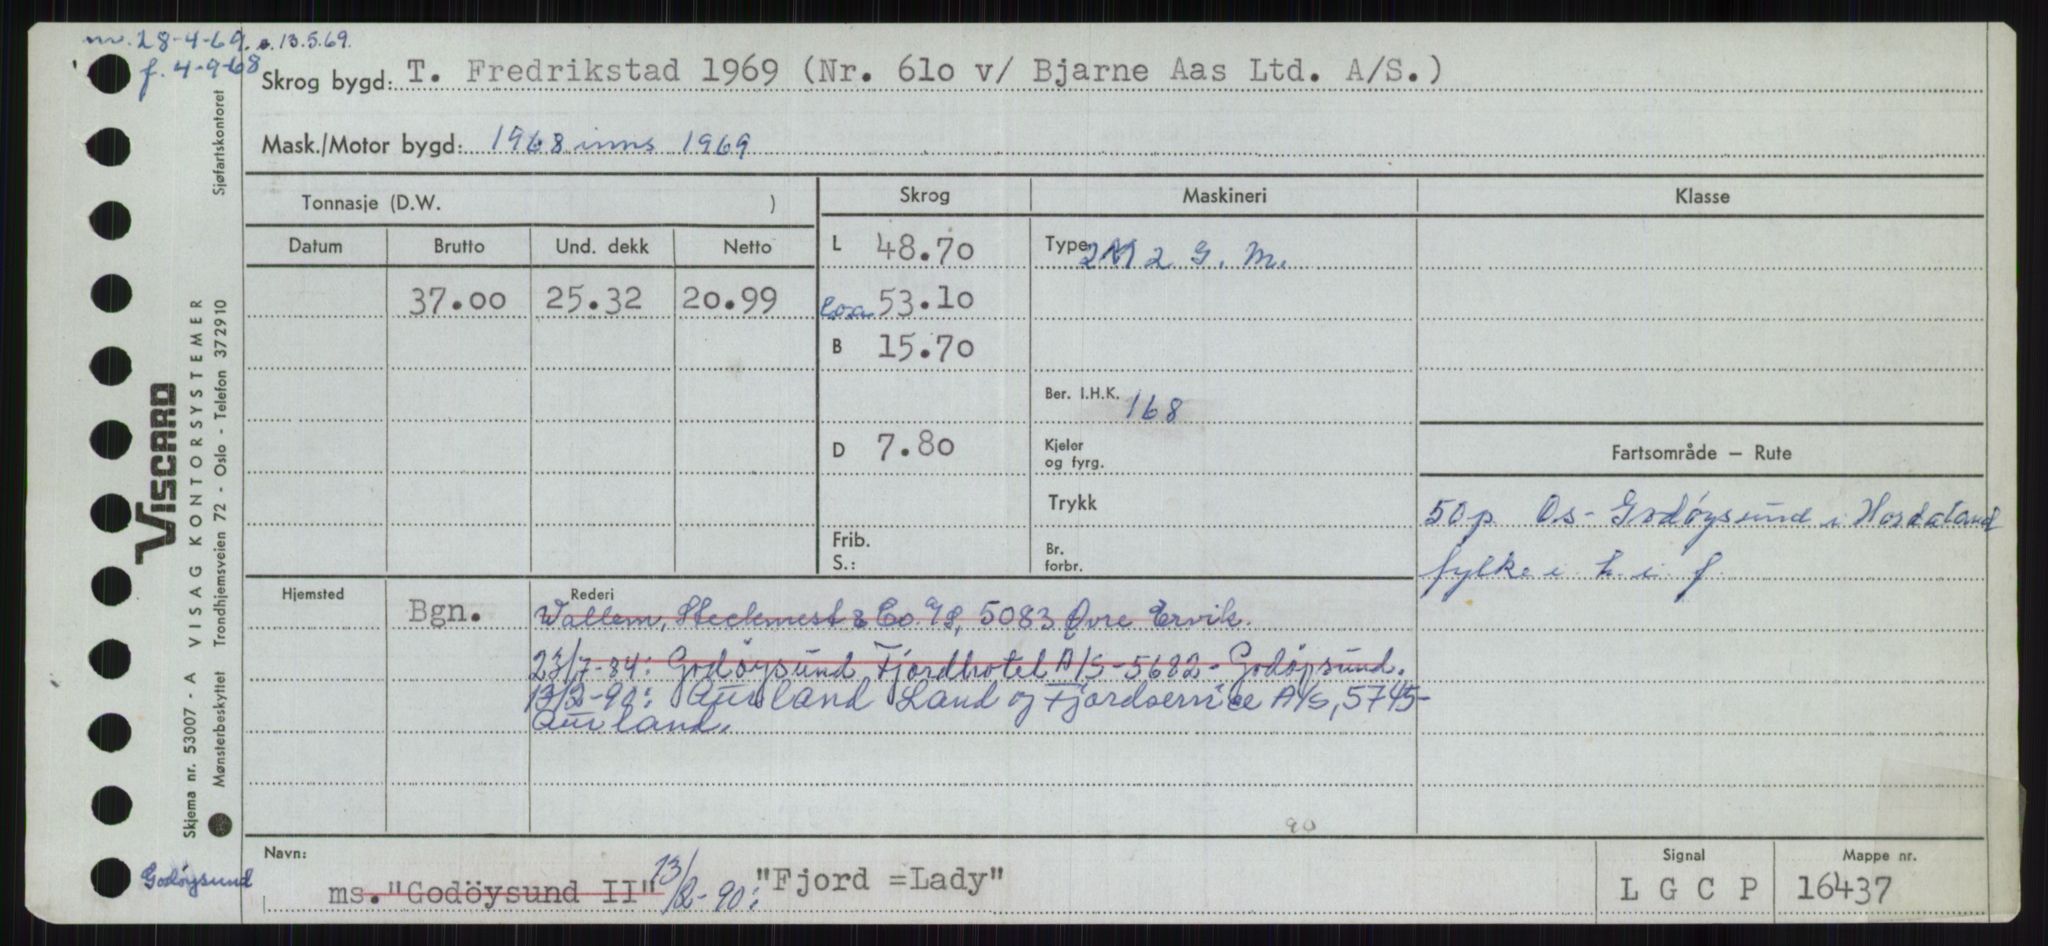 nv. 28-4-69. s. 13.5.69.
f. 4-9-68
Skrog bygd: T. Fredrikstad 1969 (Nr. 61o v/ Bjarne Aas Ltd. A/S.)
Mask./Motor bygd: 1968 inns 1969
Tonnasje (D.W. )
Skrog Maskineri Klasse
Datum Brutto Und. dekk Netto
L 48.70
Type 2 G. M.
37.00 25.32 20.99
Loa 53.10
B 15.70
Ber. I.H.K. 168
D 7.80
Kjeler
og fyrg.
Trykk
Frib.
S.:
Br.
forbr.
Fartsområde – Rute
50 p Os - Godöysund i Hordaland
fylke i h. i f
Hjemsted Rederi
Bgn. Wallem, Steckmest & Co. A/S, 5083 Øvre Ervik.
23/7-84: Godöysund Fjordhotel A/S - 5682 - Godöysund.
13/2-90: Aurland Land og Fjordservice A/S, 5745-
Aurland.
90
Navn:
ms. "Godöysund II" 13/2-90: "Fjord =Lady"
Signal
L G C P
Mappe nr.
16437
Godöysund
VISCARD
Skjema nr. 53007 - A VISAG KONTORSYSTEMER
Mønsterbeskyttet Trondhjemsveien 72 - Oslo - Telefon 372910 Sjøfartskontoret